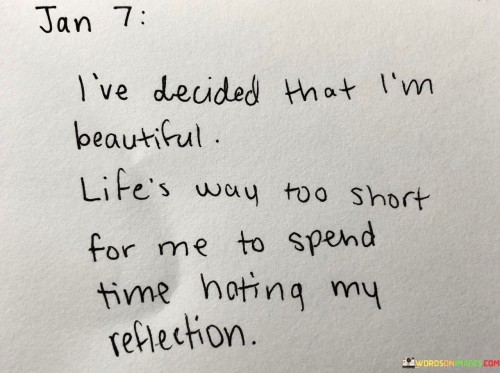 Jan 7:
I've decided that I'm
beautiful.
Life's way too short
for me to spend
time hating my
reflection.
WORDSONIMAGES.COM